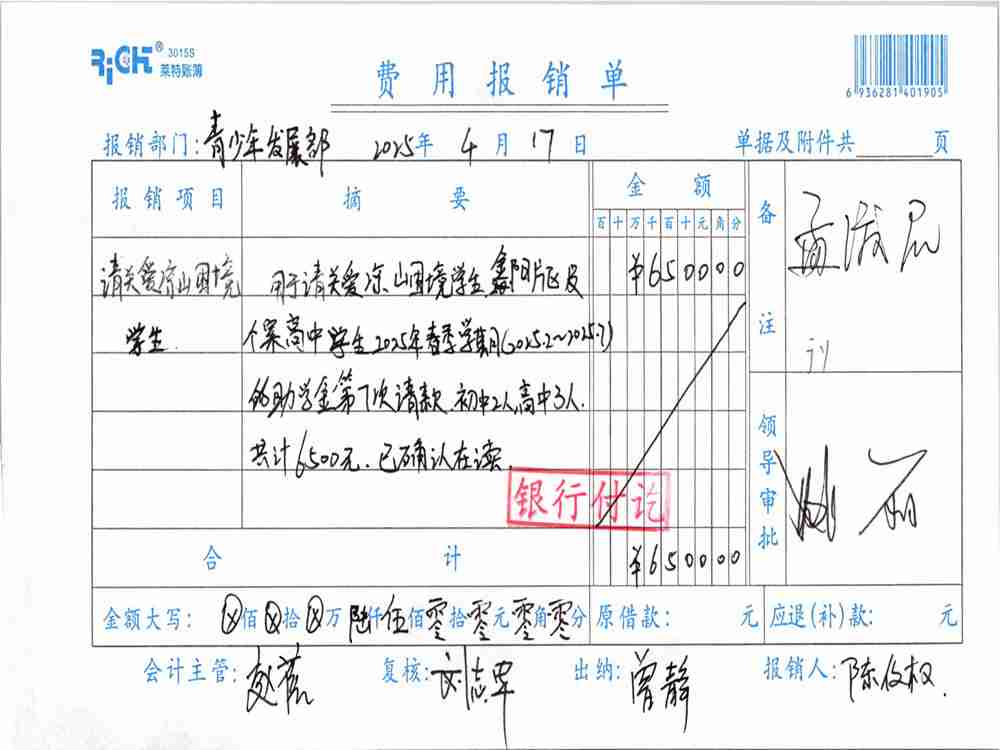 RiCH® 3015S
莱特账簿
费用报销单
6 936281 401905
报销部门: 青少年发展部 2025年 4月 17日 单据及附件共 页
报销项目 摘要 金额 备注
百 十 万 千 百 十 元 角 分
请关爱凉山困境 用于请关爱凉山困境学生 片区及 ¥650000
学生 个案高中学生2025年春季学期(2025.2~2025.7)
的助学金第1次请款.初中2人,高中3人.
共计6500元.已确认在读.
银行付讫
领导审批
合计 ¥650000
金额大写: ⊗佰⊗拾⊗万陆仟伍佰零拾零元零角零分 原借款: 元 应退(补)款: 元
会计主管: 复核: 刘志 出纳: 曾静 报销人: 陈